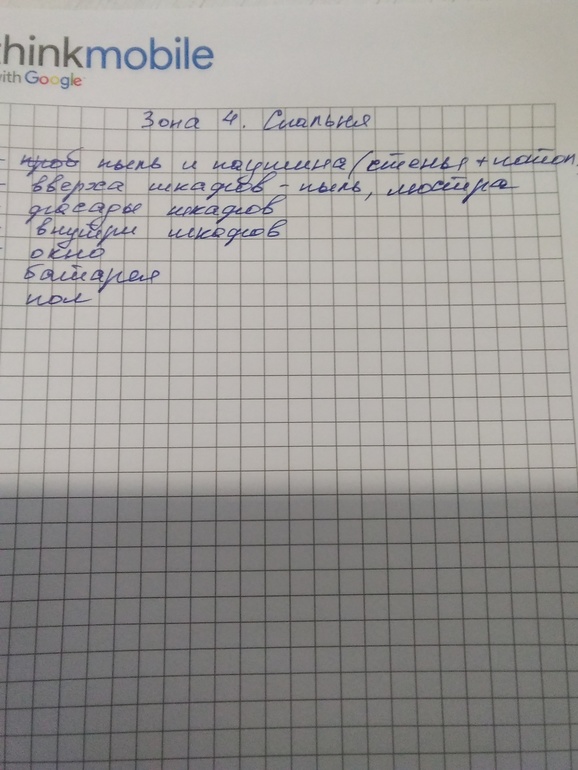 thinkmobile
with Google
Зона 4. Спальня
- проб пыль и паутина (стены + потол.
- вверха шкафов - пыль, люстра
- фасады шкафов
- внутри шкафов
- окно
батарея
пол